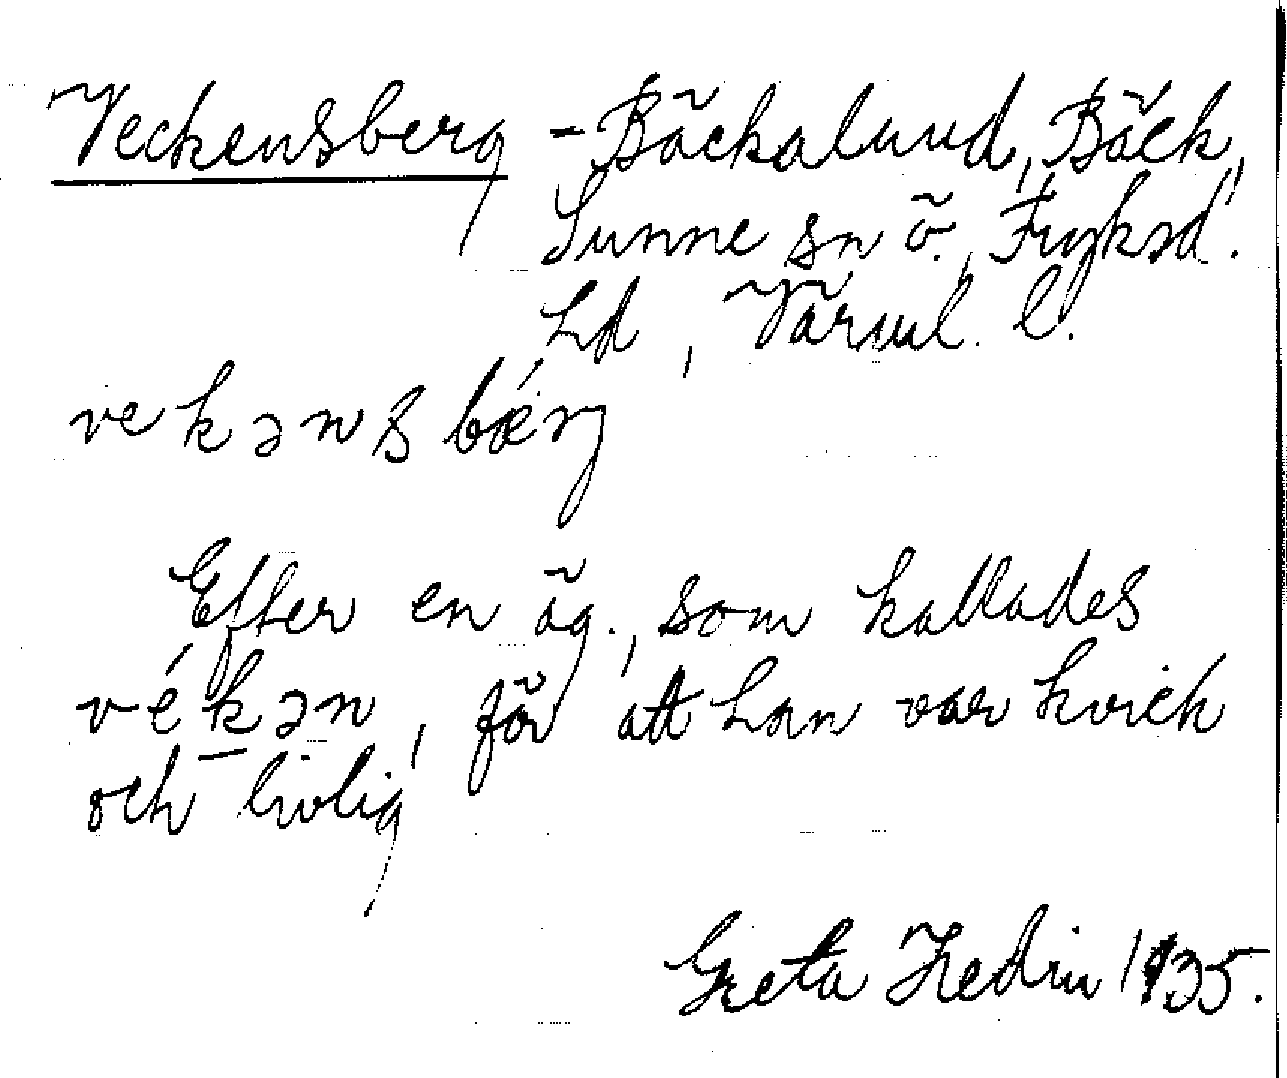 Veckensberg - Bäckalund, Bäck,
Sunne sn ö., Fryksd.
hd, Värml. l.
vekənsbǽrj
Efter en äg., som kallades
vékən, för att han var kvick
och livlig
Greta Hedin 1935.